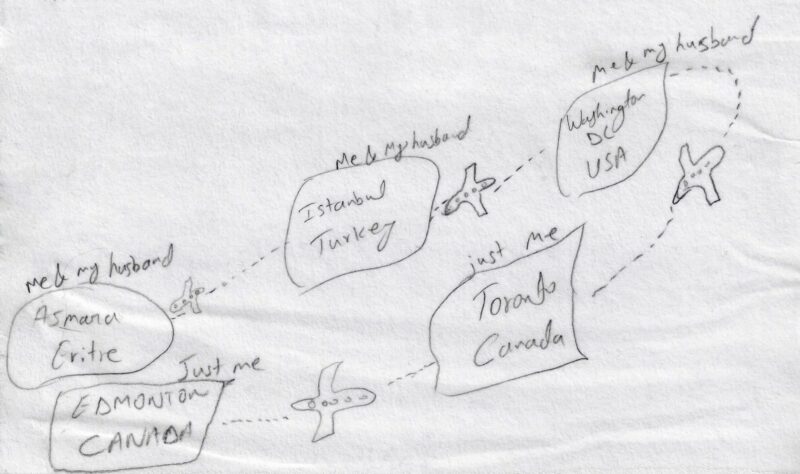 me & my husband
Washington
DC
USA
Me & my husband
Istanbul
Turkey
just me
Toronto
Canada
me & my husband
Asmara
Eritre
Just me
EDMONTON
CANADA